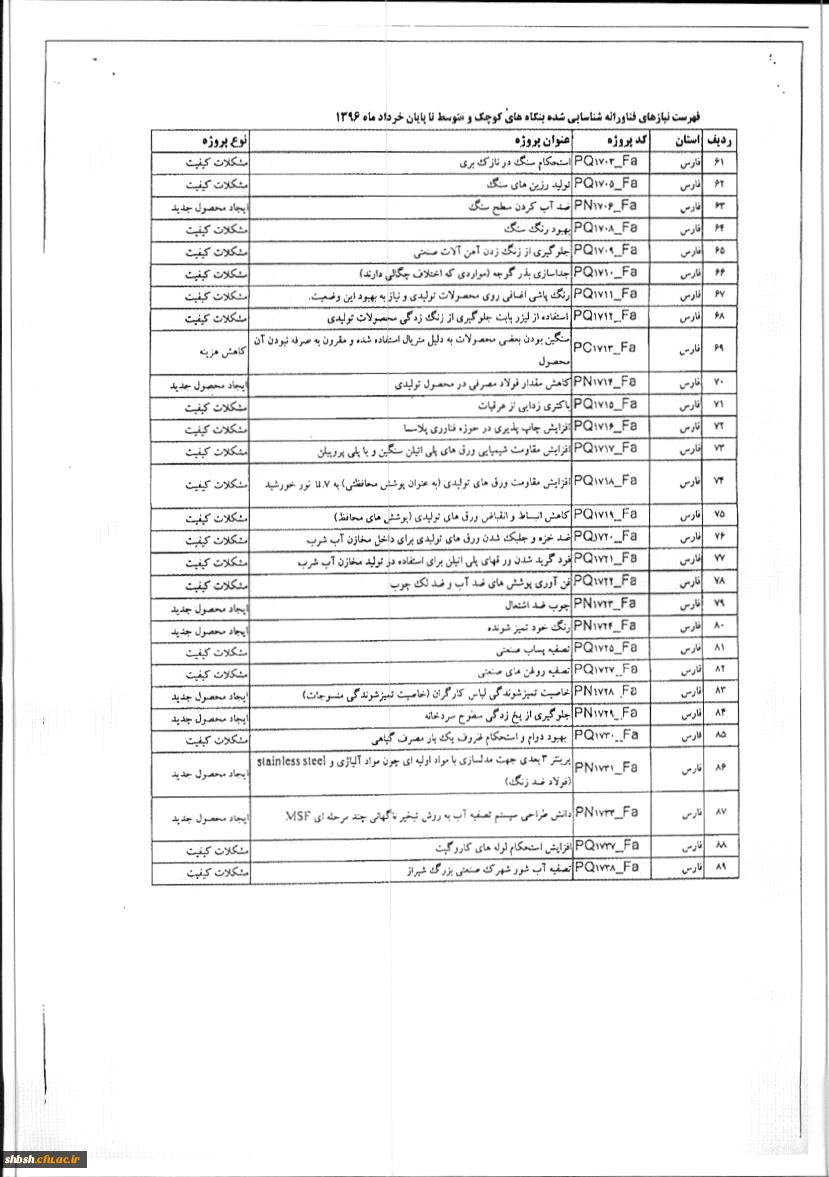 فهرست نیازهای فناورانه شناسایی شده بنگاه های کوچک و متوسط تا پایان خرداد ماه ۱۳۹۶
ردیف استان کد پروژه عنوان پروژه نوع پروژه
۶۱ فارس PQ۱۷۰۳_Fa استحکام سنگ در نازک بری مشکلات کیفیت
۶۲ فارس PQ۱۷۰۵_Fa تولید رزین های سنگ مشکلات کیفیت
۶۳ فارس PN۱۷۰۶_Fa ضد آب کردن سطح سنگ ایجاد محصول جدید
۶۴ فارس PQ۱۷۰۸_Fa بهبود رنگ سنگ مشکلات کیفیت
۶۵ فارس PQ۱۷۰۹_Fa جلوگیری از زنگ زدن آهن آلات صنعتی مشکلات کیفیت
۶۶ فارس PQ۱۷۱۰_Fa جداسازی بذر گوجه (مواردی که اختلاف چگالی دارند) مشکلات کیفیت
۶۷ فارس PQ۱۷۱۱_Fa رنگ پاشی اضافی روی محصولات تولیدی و نیاز به بهبود این وضعیت. مشکلات کیفیت
۶۸ فارس PQ۱۷۱۲_Fa استفاده از لیزر بابت جلوگیری از زنگ زدگی محصولات تولیدی مشکلات کیفیت
۶۹ فارس PC۱۷۱۳_Fa سنگین بودن بعضی محصولات به دلیل متریال استفاده شده و مقرون به صرفه نبودن آن کاهش هزینه
محصول
۷۰ فارس PN۱۷۱۴_Fa کاهش مقدار فولاد مصرفی در محصول تولیدی ایجاد محصول جدید
۷۱ فارس PQ۱۷۱۵_Fa باکتری زدایی از عرقیات مشکلات کیفیت
۷۲ فارس PQ۱۷۱۶_Fa افزایش چاپ پذیری در حوزه فناوری پلاسما مشکلات کیفیت
۷۳ فارس PQ۱۷۱۷_Fa افزایش مقاومت شیمیایی ورق های پلی اتیلن سنگین و یا پلی پروپیلن مشکلات کیفیت
۷۴ فارس PQ۱۷۱۸_Fa افزایش مقاومت ورق های تولیدی (به عنوان پوشش محافظتی) به u.v نور خورشید مشکلات کیفیت
۷۵ فارس PQ۱۷۱۹_Fa کاهش انبساط و انقباض ورق های تولیدی (پوشش های محافظ) مشکلات کیفیت
۷۶ فارس PQ۱۷۲۰_Fa ضد خزه و جلبک شدن ورق های تولیدی برای داخل مخازن آب شرب مشکلات کیفیت
۷۷ فارس PQ۱۷۲۱_Fa فود گرید شدن ورقهای پلی اتیلن برای استفاده در تولید مخازن آب شرب مشکلات کیفیت
۷۸ فارس PQ۱۷۲۲_Fa فن آوری پوشش های ضد آب و ضد لک چوب مشکلات کیفیت
۷۹ فارس PN۱۷۲۳_Fa چوب ضد اشتعال ایجاد محصول جدید
۸۰ فارس PN۱۷۲۴_Fa رنگ خود تمیز شونده ایجاد محصول جدید
۸۱ فارس PQ۱۷۲۵_Fa تصفیه پساب صنعتی مشکلات کیفیت
۸۲ فارس PQ۱۷۲۷_Fa تصفیه روغن های صنعتی مشکلات کیفیت
۸۳ فارس PN۱۷۲۸_Fa خاصیت تمیزشوندگی لباس کارگران (خاصیت تمیزشوندگی منسوجات) ایجاد محصول جدید
۸۴ فارس PN۱۷۲۹_Fa جلوگیری از یخ زدگی سطوح سردخانه ایجاد محصول جدید
۸۵ فارس PQ۱۷۳۰_Fa بهبود دوام و استحکام ظروف یک بار مصرف گیاهی مشکلات کیفیت
۸۶ فارس PN۱۷۳۱_Fa پرینتر ۳ بعدی جهت مدلسازی با مواد اولیه ای چون مواد آلیاژی و stainless steel ایجاد محصول جدید
(فولاد ضد زنگ)
۸۷ فارس PN۱۷۳۳_Fa دانش طراحی سیستم تصفیه آب به روش تبخیر ناگهانی چند مرحله ای MSF ایجاد محصول جدید
۸۸ فارس PQ۱۷۳۷_Fa افزایش استحکام لوله های کاروگیت مشکلات کیفیت
۸۹ فارس PQ۱۷۳۸_Fa تصفیه آب شور شهرک صنعتی بزرگ شیراز مشکلات کیفیت
shbsh.cfu.ac.ir